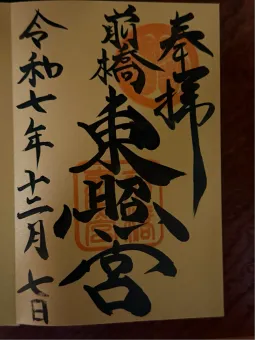 奉拝
前橋
東照宮
令和七年十二月七日